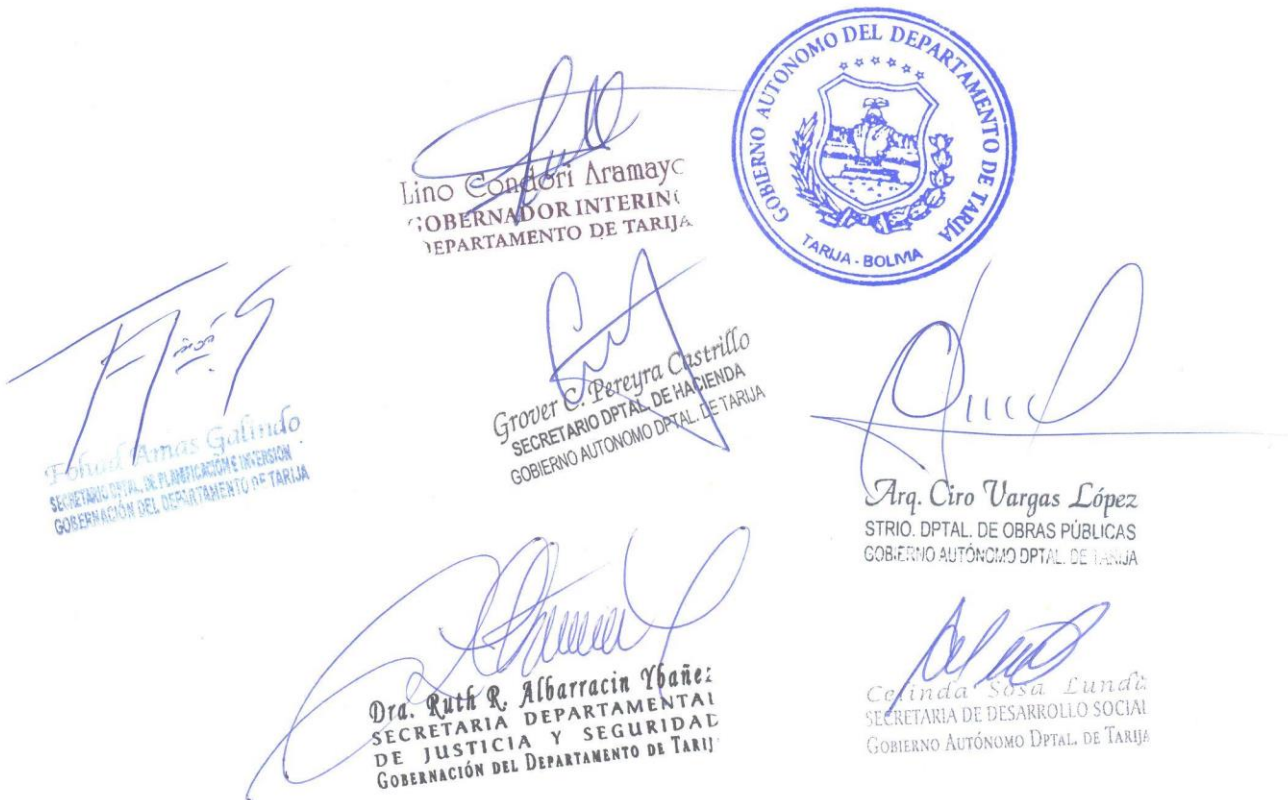 Lino Condori Aramayo
GOBERNADOR INTERINO
DEPARTAMENTO DE TARIJA
GOBIERNO AUTONOMO DEL DEPARTAMENTO DE TARIJA
TARIJA - BOLIVIA
Galindo
SECRETARIO DPTAL. DE PLANIFICACION E INVERSION
GOBERNACIÓN DEL DEPARTAMENTO DE TARIJA
Grover C. Pereyra Castrillo
SECRETARIO DPTAL. DE HACIENDA
GOBIERNO AUTONOMO DPTAL. DE TARIJA
Arq. Ciro Vargas López
STRIO. DPTAL. DE OBRAS PÚBLICAS
GOBIERNO AUTÓNOMO DPTAL. DE TARIJA
Dra. Ruth R. Albarracin Ybañez
SECRETARIA DEPARTAMENTAL
DE JUSTICIA Y SEGURIDAD
GOBERNACIÓN DEL DEPARTAMENTO DE TARIJ
Celinda Sosa Lunda
SECRETARIA DE DESARROLLO SOCIAL
GOBIERNO AUTÓNOMO DPTAL. DE TARIJA